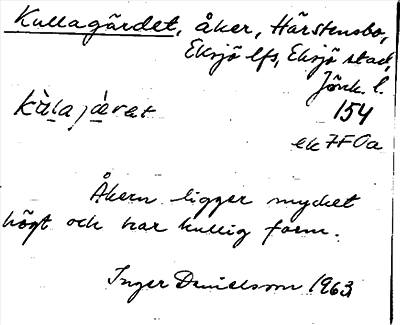 Kullagärdet, åker, Härstensbo,
Eksjö lfs, Eksjö stad,
Jönk. l.
kùlajæ̀rat 154
ek 7F0a
Åkern ligger mycket
högt och har kullig form.
Inger Danielsson 1963